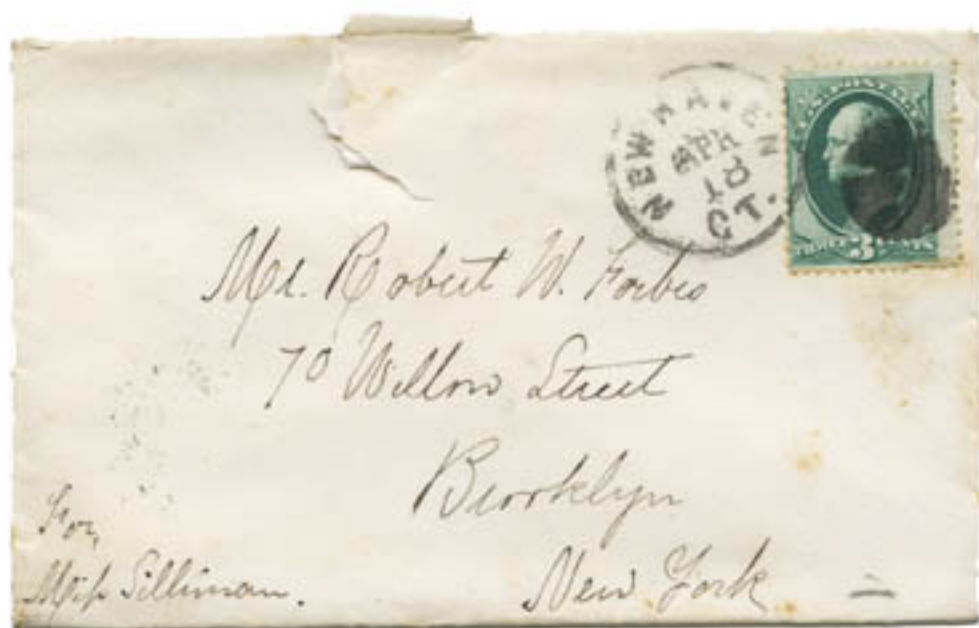 NEW HAVEN
APR
10
CT.
U.S. POSTAGE
THREE 3 CENTS
Mr. Robert W. Forbes
70 Willow Street
Brooklyn
New York
From
Miss Silliman.